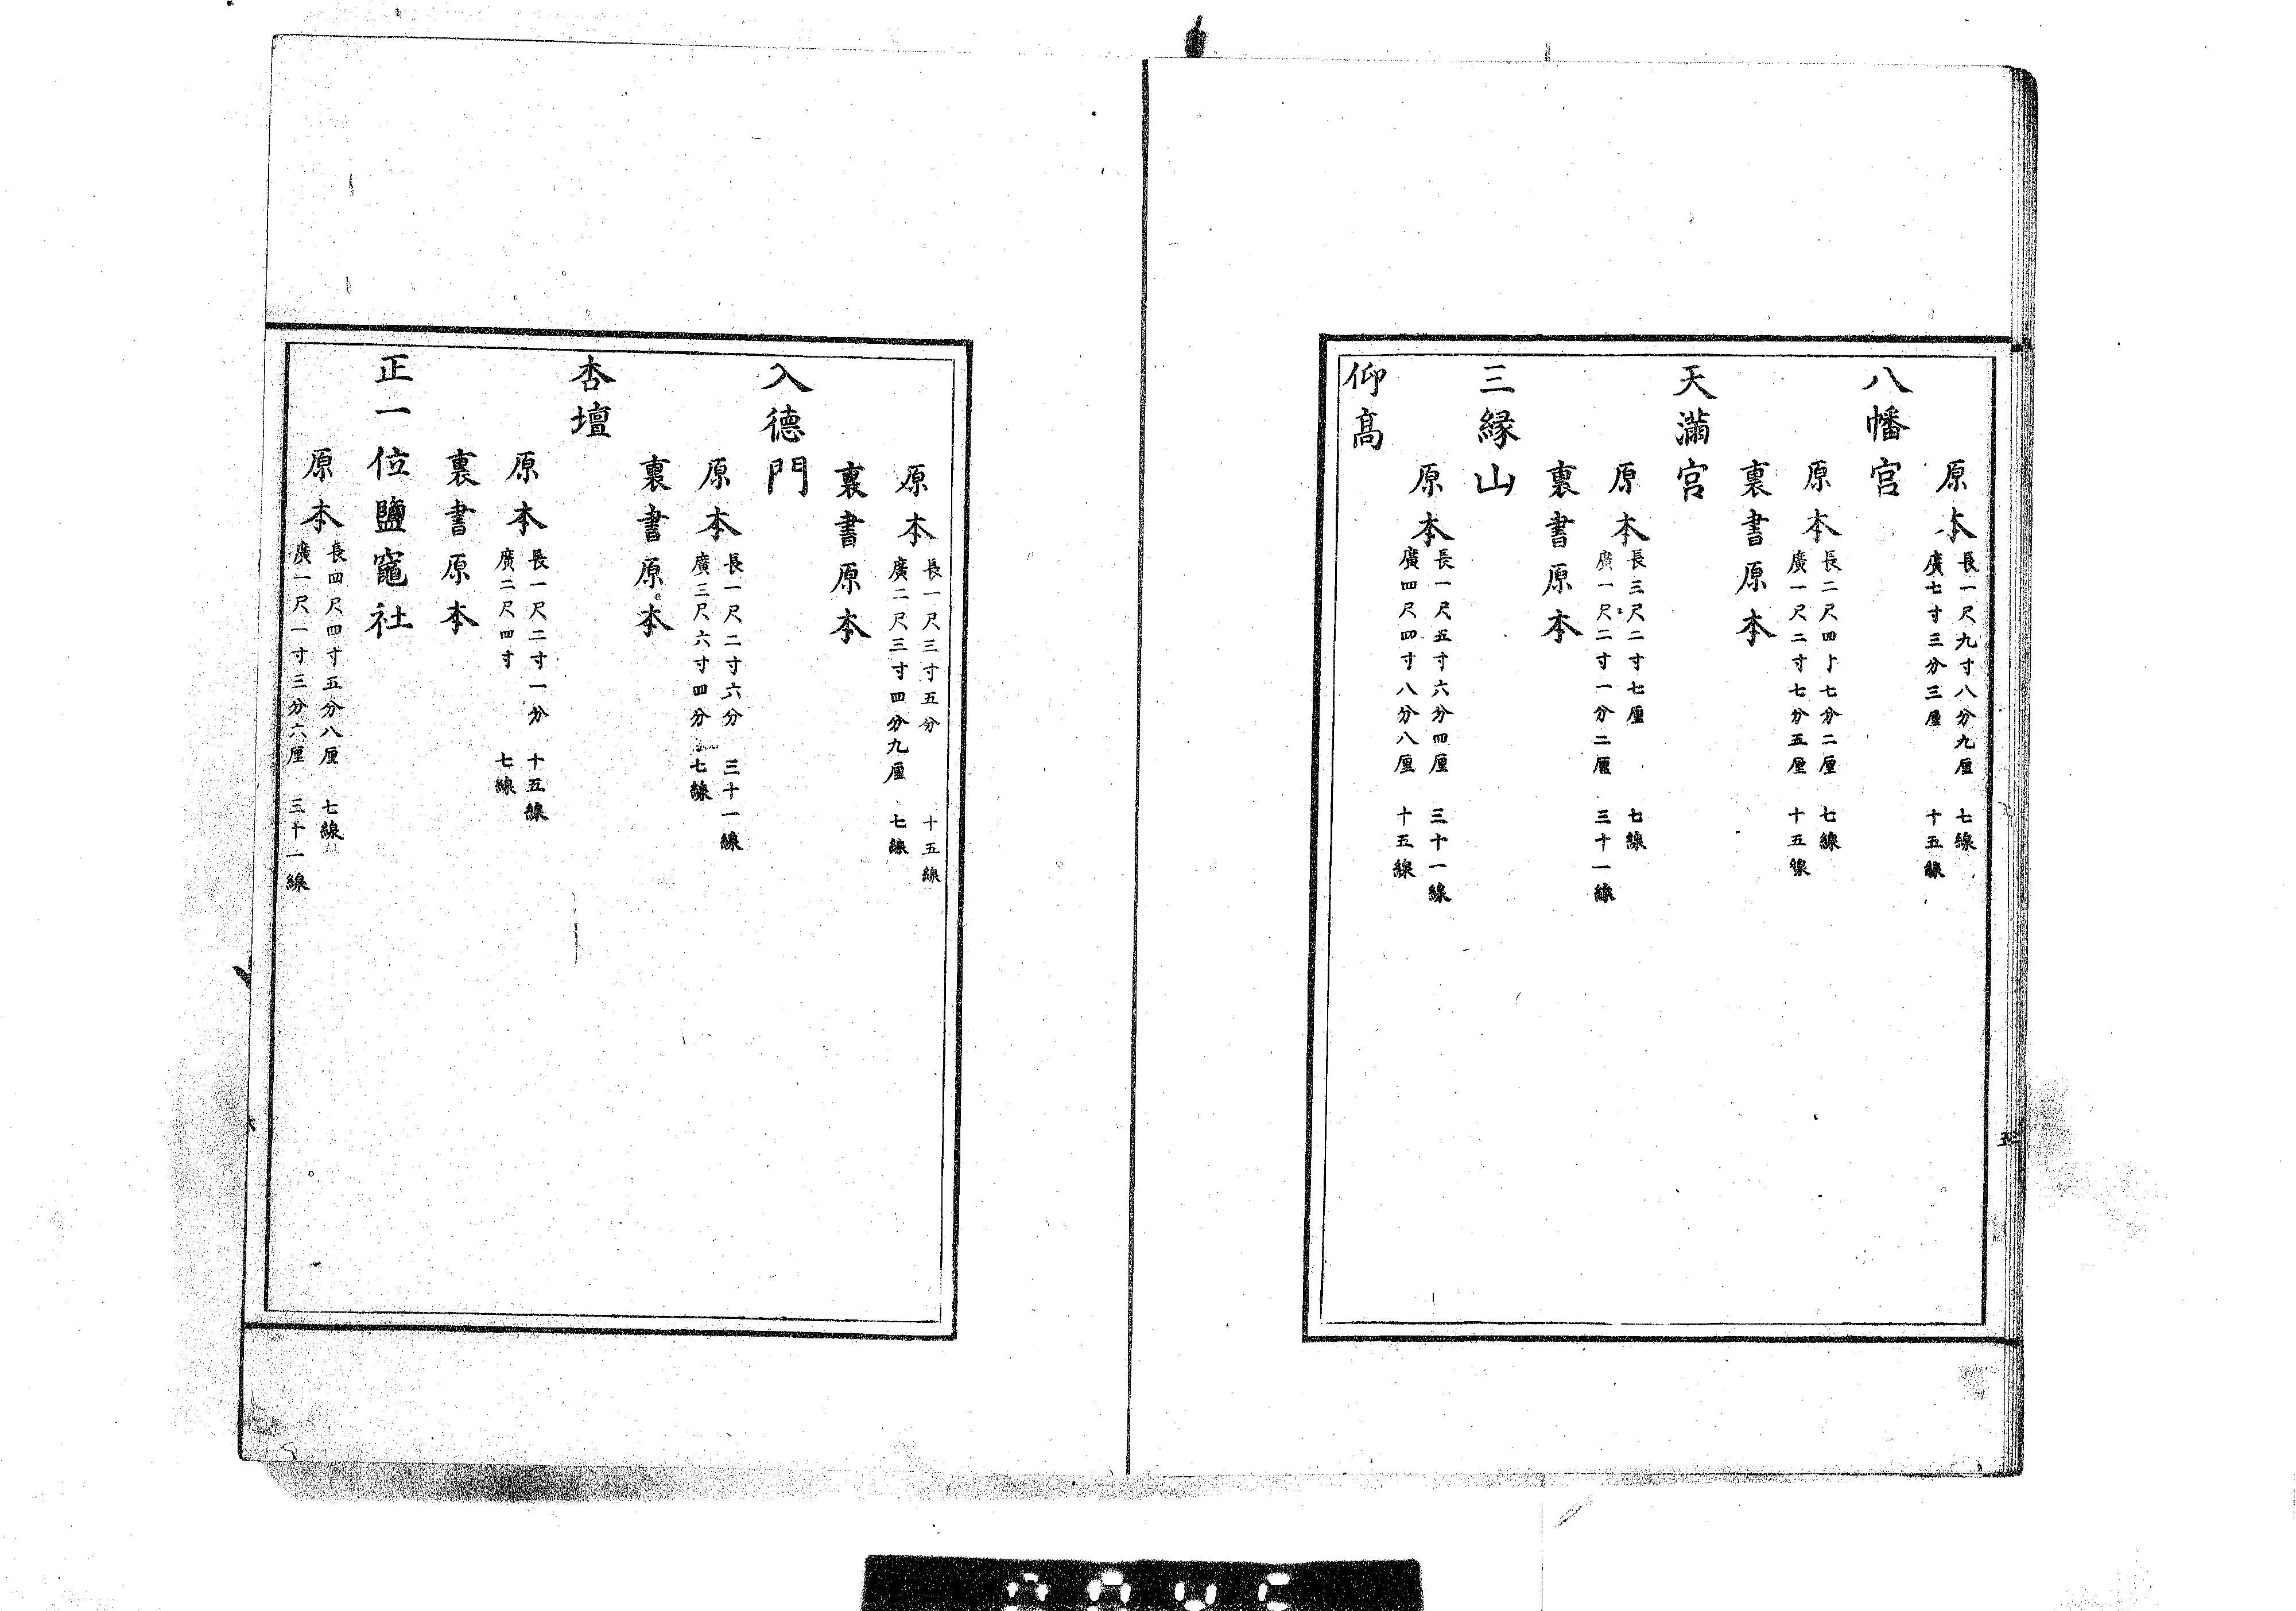 原本 長一尺九寸八分九厘 七線
廣七寸三分三厘 十五線
八幡宮
原本 長二尺四寸七分二厘 七線
廣一尺二寸七分五厘 十五線
裏書原本
天滿宮
原本 長三尺二寸七厘 七線
廣一尺二寸一分二厘 三十一線
裏書原本
三縁山
原本 長一尺五寸六分四厘 三十一線
廣四尺四寸八分八厘 十五線
仰高
原本 長一尺三寸五分 十五線
廣二尺三寸四分九厘 七線
裏書原本
入德門
原本 長一尺二寸六分 三十一線
廣三尺六寸四分 七線
裏書原本
杏壇
原本 長一尺二寸一分 十五線
廣二尺四寸 七線
裏書原本
正一位鹽竈社
原本 長四尺四寸五分八厘 七線
廣一尺一寸三分六厘 三十一線